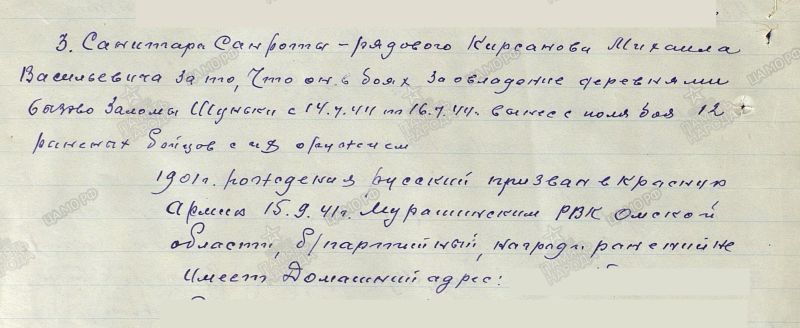 3. Санитара Санроты - рядового Кирсанова Михаила
Васильевича за то, что он в боях за овладение деревнями
Заломы Шуньки с 14.7.44 по 16.7.44г. вынес с поля боя 12
раненых бойцов с их оружием
1901г. рождения русский призван в Красную
Армию 15.9.41г. Мурашинским РВК Омской
области, б/партийный, наград и ранений не
имеет Домашний адрес: